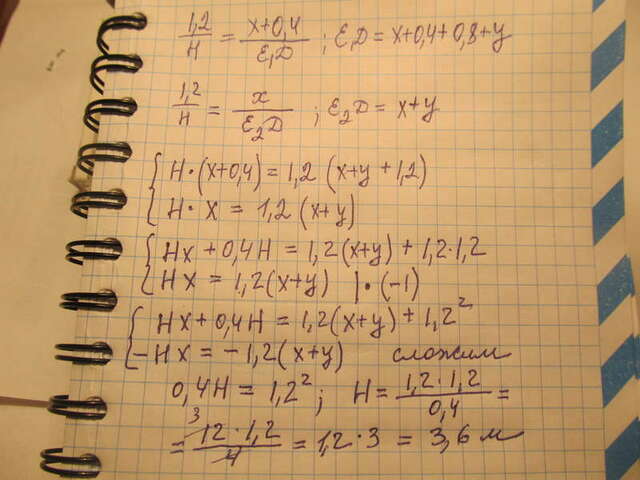 1,2/H = x+0,4/E₁D ; E₁D = x+0,4+0,8+y
1,2/H = x/E₂D ; E₂D = x+y
{ H·(x+0,4) = 1,2 (x+y+1,2)
H·x = 1,2 (x+y)
{ Hx + 0,4H = 1,2(x+y) + 1,2·1,2
Hx = 1,2(x+y) |·(-1)
{ Hx + 0,4H = 1,2(x+y) + 1,2²
-Hx = -1,2(x+y) сложим
0,4H = 1,2²; H = 1,2·1,2/0,4 =
= 12·1,2/4 3 = 1,2·3 = 3,6 м